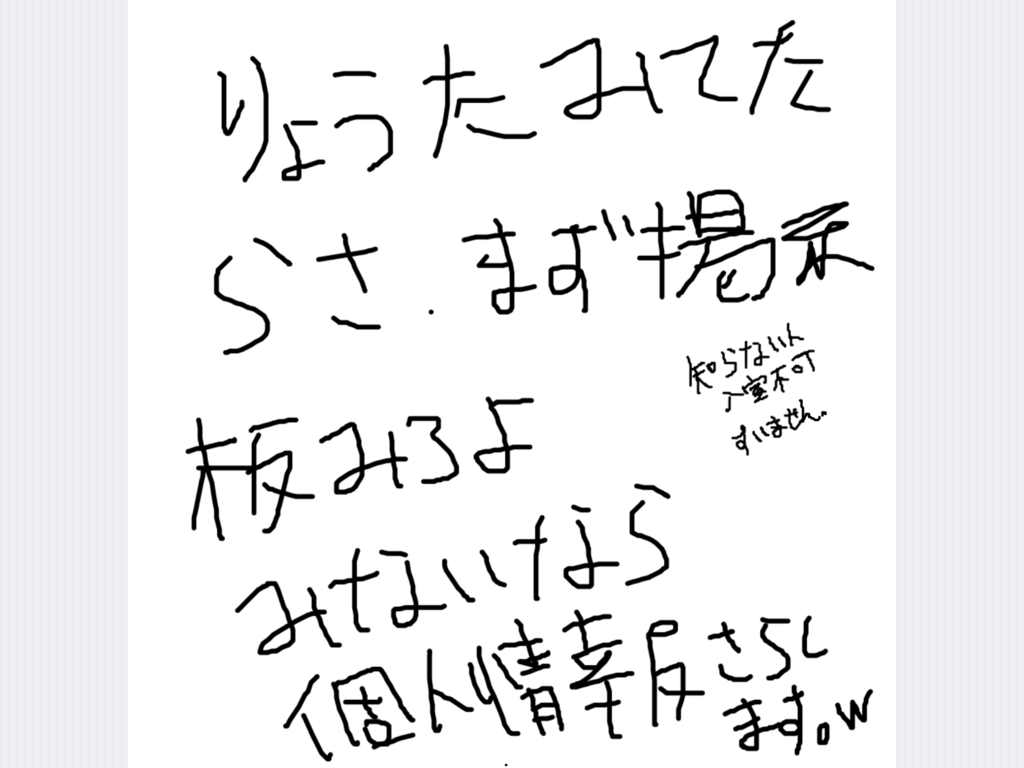 りょうたみてた
らさ.まず掲示
板みろよ
みないなら
個人情報さらし
ます。w
知らない人
入室不可
すいません。